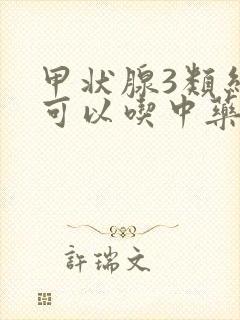 甲状腺3類
可以喫中藥
許瑞文